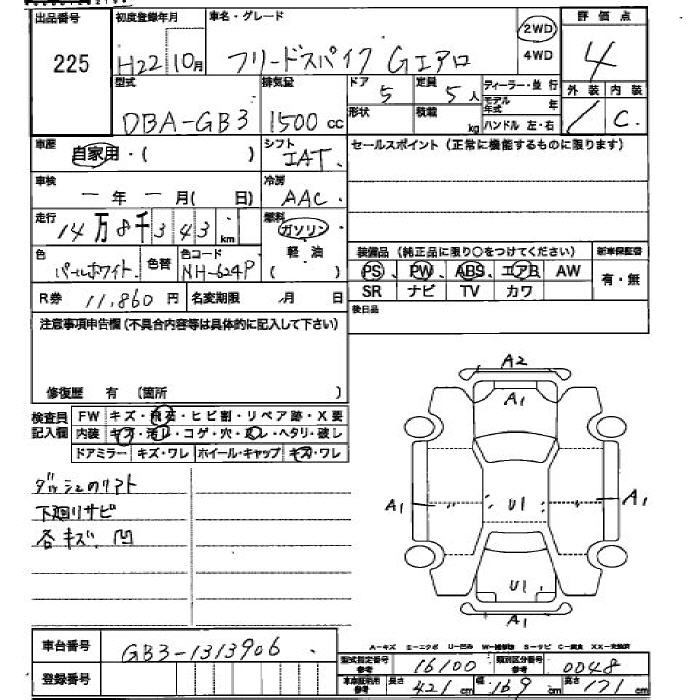 出品番号 初度登録年月 車名・グレード 評価点
225 H22 10月 フリードスパイク Gエアロ 2WD 4WD 4
型式 排気量 ドア 定員 ディーラー・並行 外装 内装
DBA-GB3 1500 cc 5 5人 モデル年式 年 C
形状 積載 kg ハンドル 左・右
車歴 自家用・( ) シフト IAT セールスポイント(正常に機能するものに限ります)
車検 ー年ー月( 日) 冷房 AAC
走行 14万8千343km 燃料 ガソリン 軽油 ( )
色 パールホワイト 色替 色コード NH-624P
装備品(純正品に限り○をつけてください) 新車保証書
PS、PW、ABS、エアB、AW 有・無
SR ナビ TV カワ
R券 11,860円 名変期限 月 日 後日品
注意事項申告欄(不具合内容等は具体的に記入して下さい)
修復歴 有 (箇所 )
検査員記入欄 FW キズ・飛石・ヒビ割・リペア跡・X要
内装 キズ・汚レ・コゲ・穴・スレ・ヘタリ・破レ
ドアミラー キズ・ワレ ホイール・キャップ キズ・ワレ
下廻リサビ
各キズ、凹
A2
A1
A1 U1 A1
U1
A1
A-キズ E-エクボ U-凹み W-補修跡 S-サビ C-腐食 XX-交換済
車台番号 GB3-1313906
登録番号
型式指定番号 参考 16100 類別区分番号 参考 0048
長さ 421cm 幅 169cm 高さ 171cm